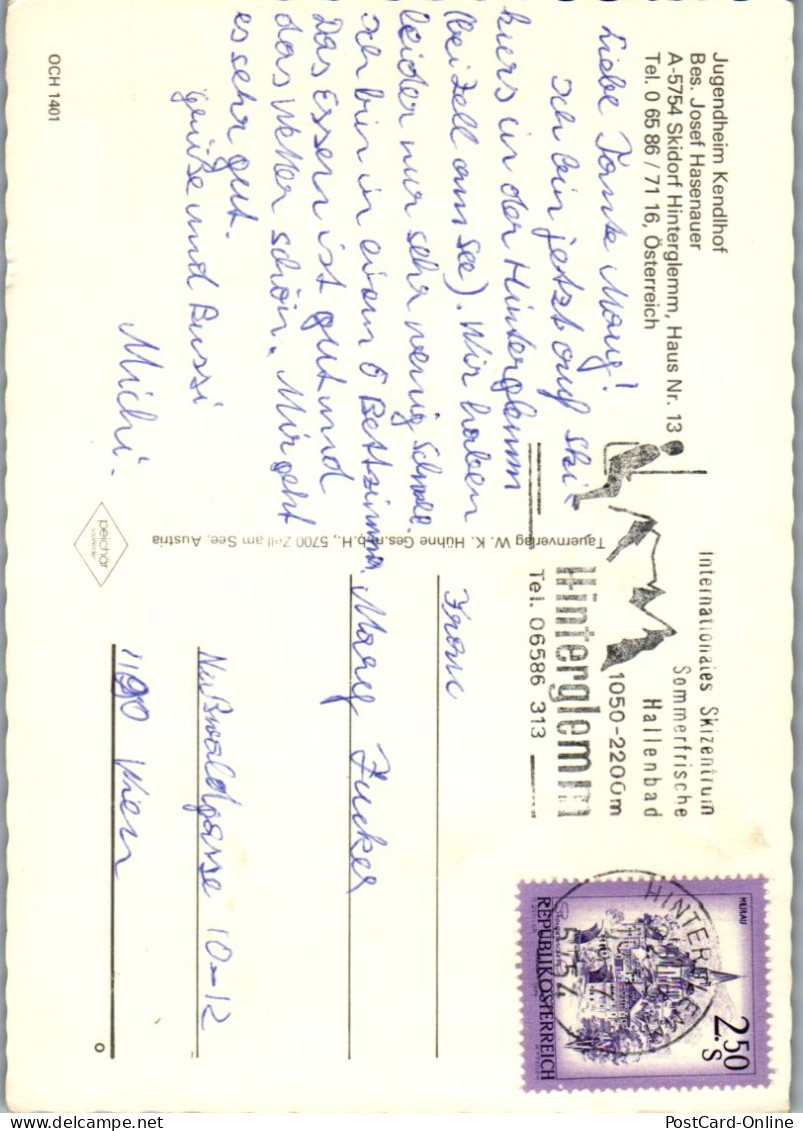 Jugendheim Kendlhof
Bes. Josef Hasenauer
A-5754 Skidorf Hinterglemm, Haus Nr. 13
Tel. 0 65 86 / 71 16, Österreich
Liebe Tante Mary!
Ich bin jetzt auf Ski-
kurs in der Hinterglemm
(bei Zell am See). Wir haben
leider nur sehr wenig Schnee.
Ich bin in einem 6 Bettzimma
Das Essern ist gut und
das Wetter schön. Mir geht
es sehr gut.
Grüße und Bussi
Michi.
OCH 1401
Tauernverlag W. K. Hühne Ges.m.b.H., 5700 Zell am See, Austria
peichär
Internationales Skizentrum
Sommerfrische
Hallenbad
1050-2200m
Hinterglemm
Tel. 06586 313
Frau
Mary Zucker
Nußwaldgasse 10-12
1190 Wien
MURAU
2.50
S
REPUBLIK ÖSTERREICH
HINTERGLEMM
5754
o
PostCard-Online